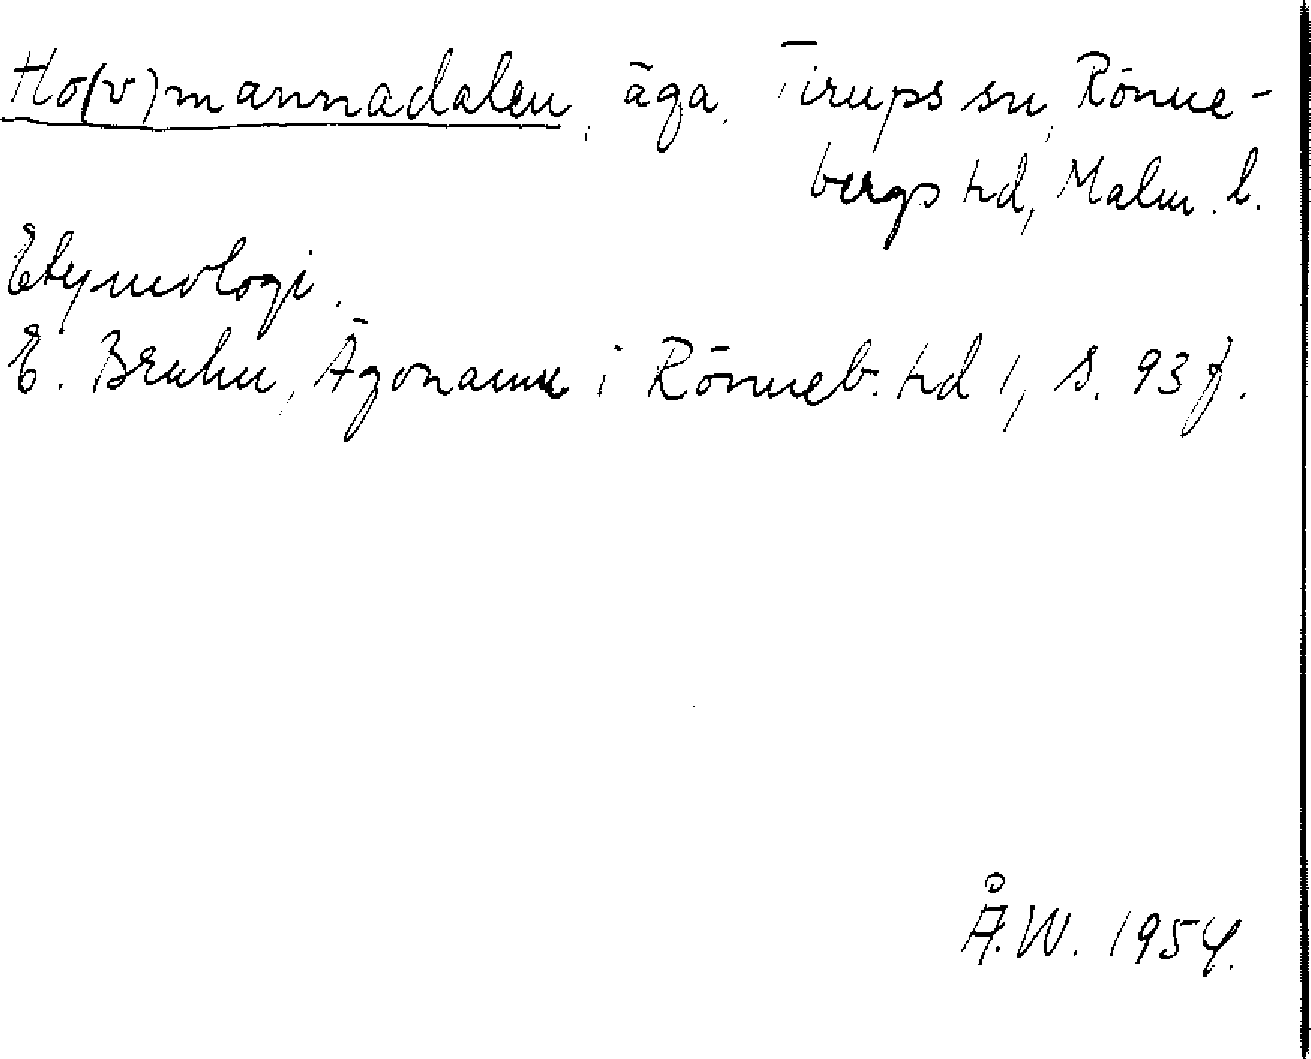 Ho(v)mannadalen, äga, Tirups sn, Rönne-
bergs hd, Malm. l.
Etymologi.
E. Bruhn, Ägonamn i Rönneb. hd 1, s. 93 f.
Å.W. 1954.